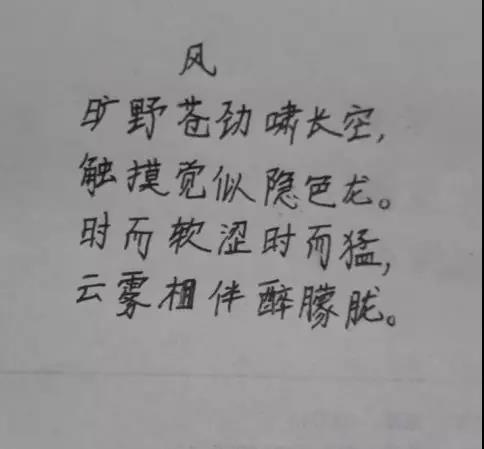 风
旷野苍劲啸长空,
触摸觉似隐色龙。
时而软涩时而猛,
云雾相伴醉朦胧。